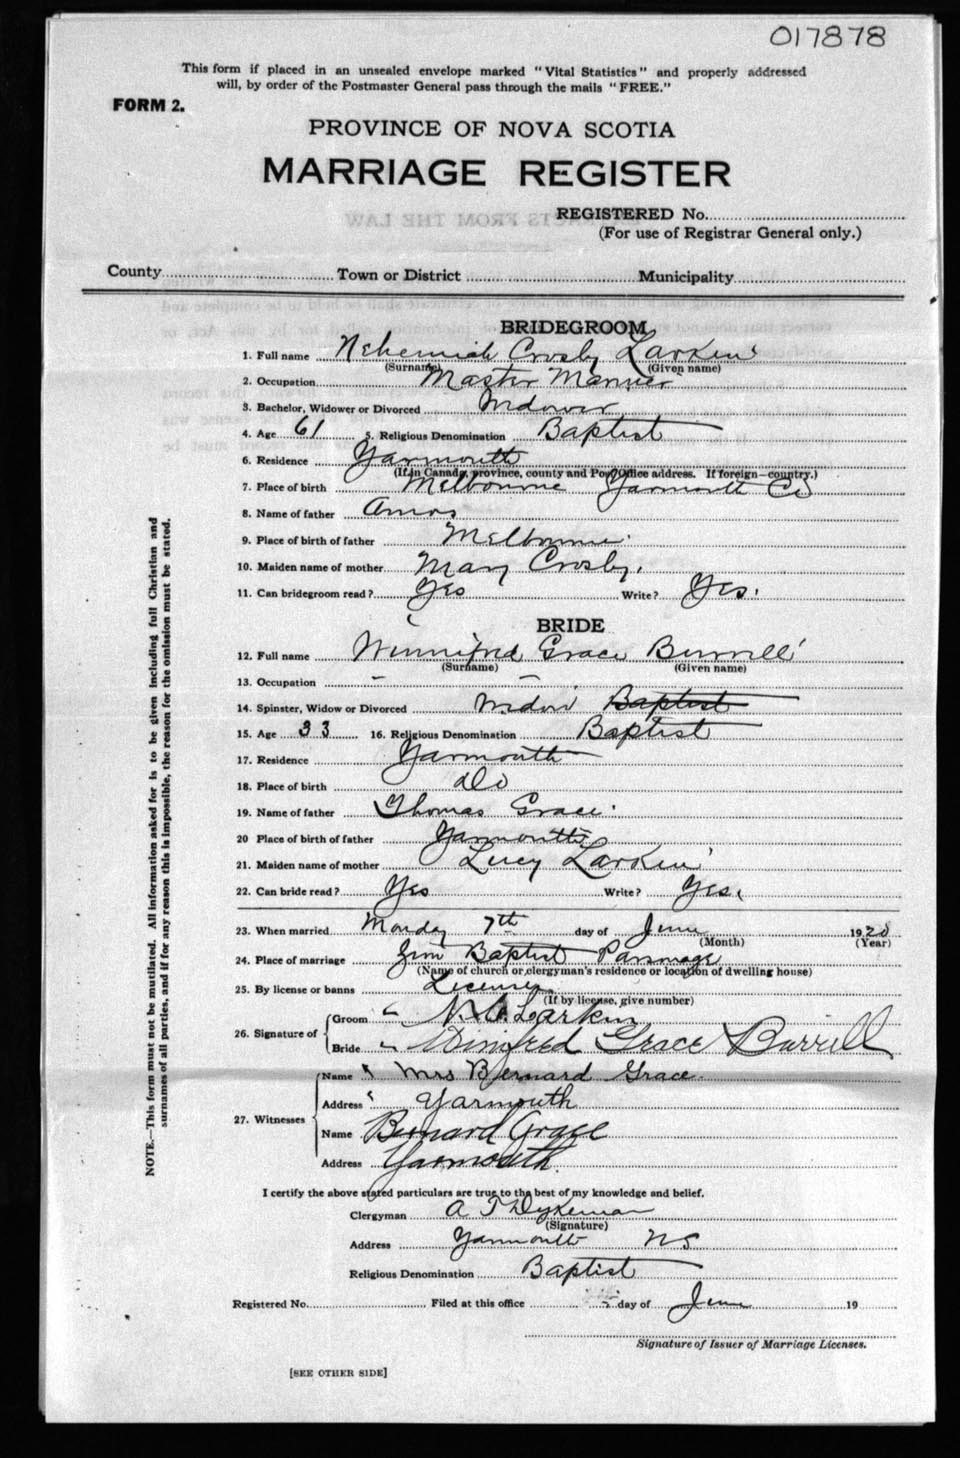 017878
This form if placed in an unsealed envelope marked "Vital Statistics" and properly addressed
will, by order of the Postmaster General pass through the mails "FREE."
FORM 2.
PROVINCE OF NOVA SCOTIA
MARRIAGE REGISTER
REGISTERED No.
(For use of Registrar General only.)
County Town or District Municipality
BRIDEGROOM
1. Full name Nehemiah Crosby Larkin
(Surname) (Given name)
2. Occupation Master Mariner
3. Bachelor, Widower or Divorced Widower
4. Age 61 5. Religious Denomination Baptist
6. Residence Yarmouth
(If in Canada, province, county and Post Office address. If foreign—country.)
7. Place of birth Melbourne Yarmouth Co
8. Name of father Amos
9. Place of birth of father Melbourne
10. Maiden name of mother Mary Crosby.
11. Can bridegroom read? Yes Write? Yes.
BRIDE
12. Full name Winnifred Grace Burrill
(Surname) (Given name)
13. Occupation – –
14. Spinster, Widow or Divorced Widow Baptist
15. Age 33 16. Religious Denomination Baptist
17. Residence Yarmouth
18. Place of birth do
19. Name of father Thomas Grace
20 Place of birth of father Yarmouth
21. Maiden name of mother Lucy Larkin
22. Can bride read? Yes Write? Yes.
23. When married Monday 7th day of June 1920
(Month) (Year)
24. Place of marriage Zion Baptist Parsonage
(Name of church or clergyman's residence or location of dwelling house)
25. By license or banns License
(If by license, give number)
26. Signature of
Groom N. C. Larkin
Bride Winifred Grace Burrill
27. Witnesses
Name Mrs Bernard Grace
Address Yarmouth
Name Bernard Grace
Address Yarmouth.
I certify the above stated particulars are true to the best of my knowledge and belief.
Clergyman A T Dykeman
(Signature)
Address Yarmouth NS
Religious Denomination Baptist
Registered No. Filed at this office day of June 19
Signature of Issuer of Marriage Licenses.
[SEE OTHER SIDE]
NOTE.—This form must not be mutilated. All information asked for is to be given including full Christian and
surnames of all parties, and if for any reason this is impossible, the reason for the omission must be stated.